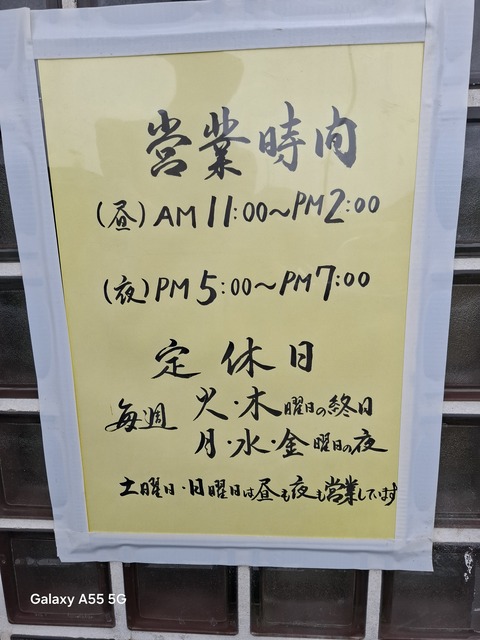 営業時間
(昼)AM11:00~PM2:00
(夜)PM5:00~PM7:00
定休日
毎週 火・木曜日の終日
月・水・金曜日の夜
土曜日・日曜日は昼も夜も営業しています
Galaxy A55 5G